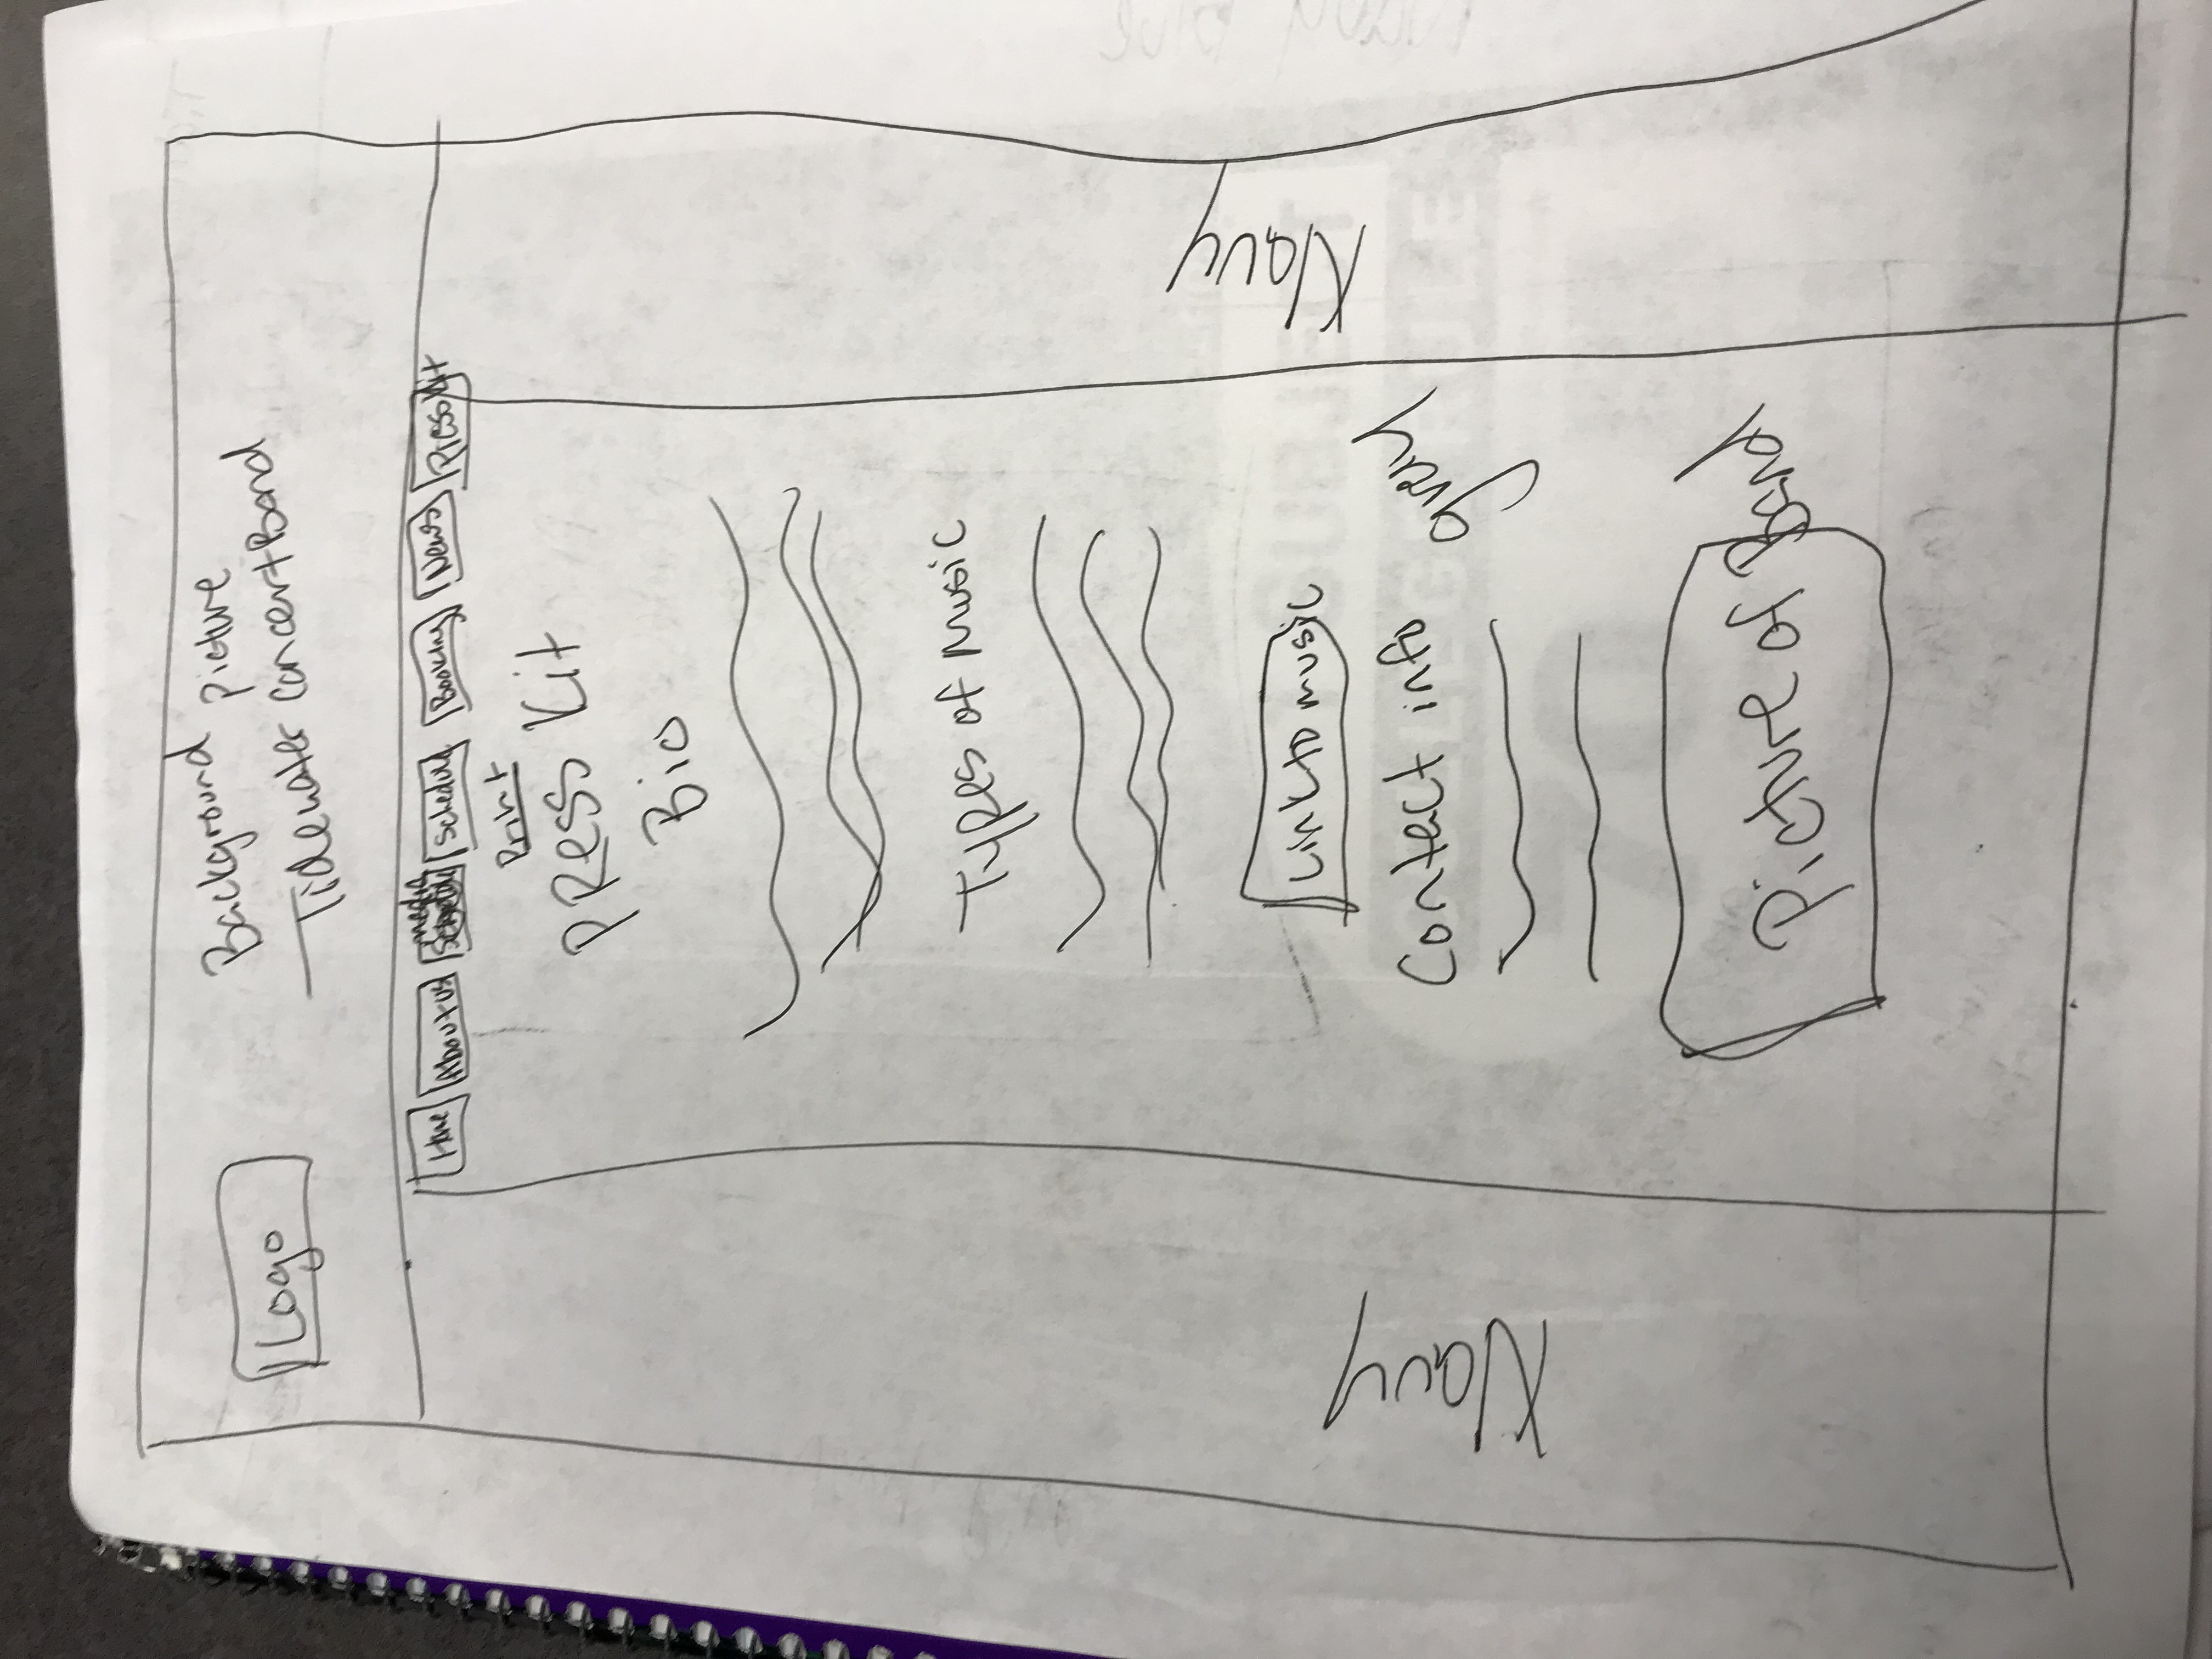 Logo
Background picture
Tidewater Concert Band
Home
About us
media
Schedule
Booking
News
Press Kit
Print
PRess Kit
Bio
Types of Music
Link to music
Contact info
gray
Navy
Navy
Picture of Band